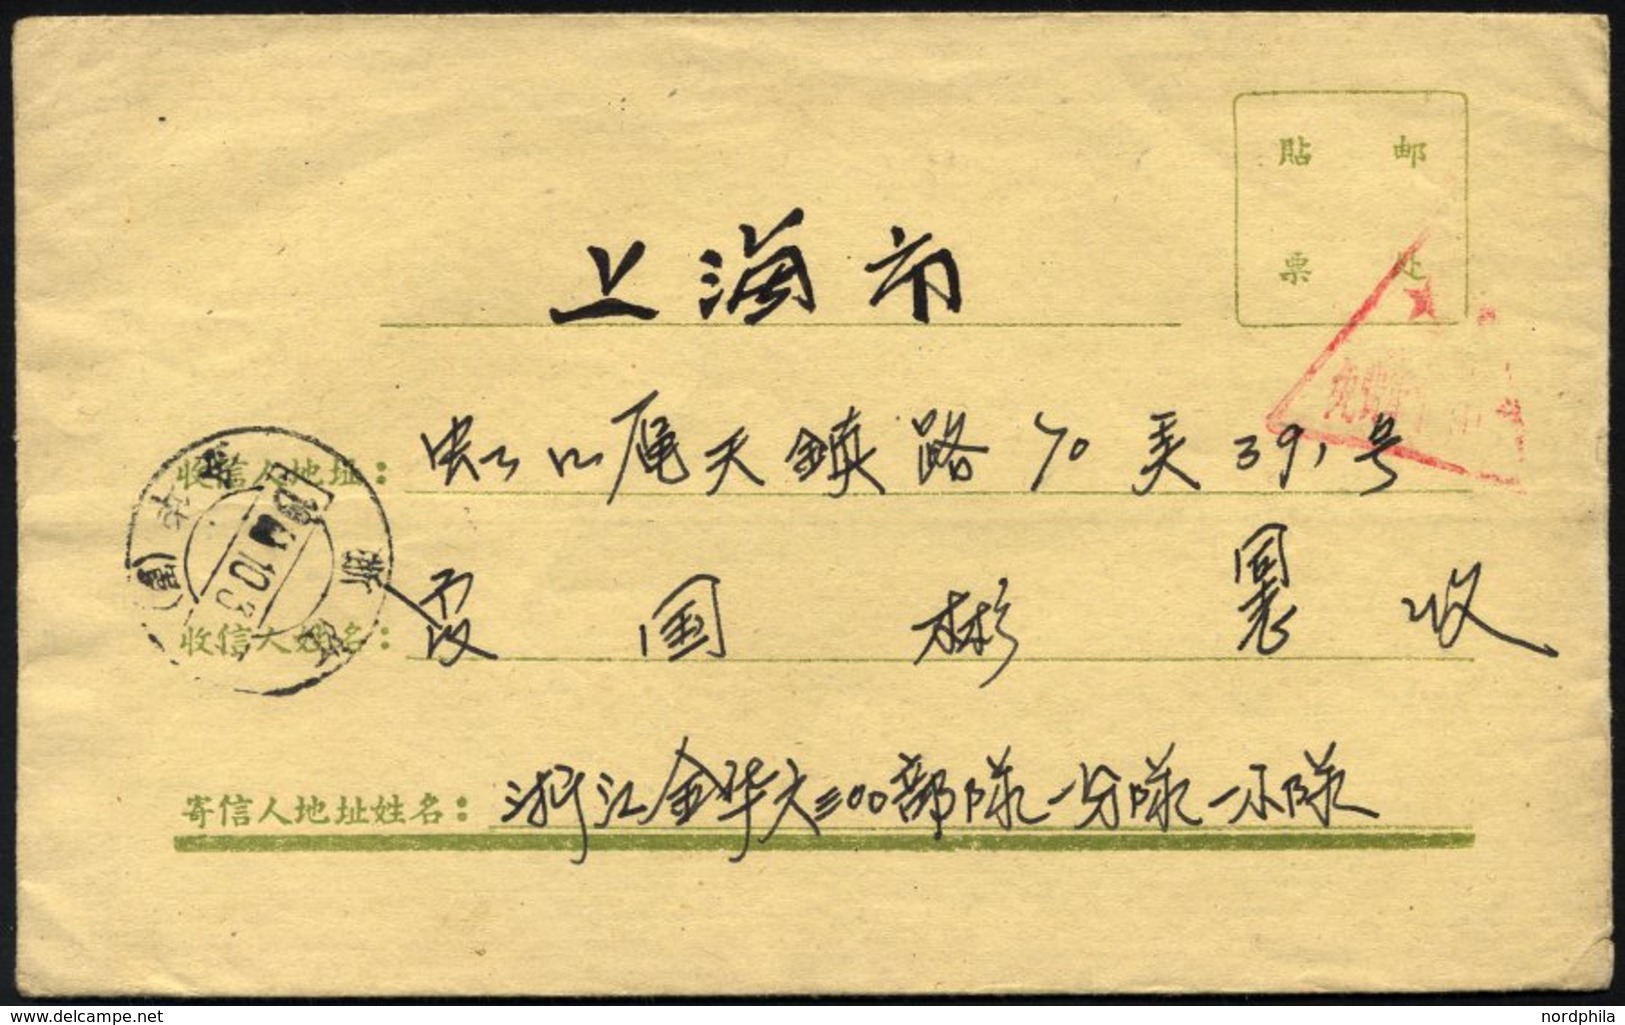 貼 邮
票 处
上海市
收信人地址：虹口区天鎮路70弄39号
收信人姓名：夏国彬 收
寄信人地址姓名：浙江金华六三00部隊一分隊一小隊
免費
浙
10
delcampe.net
nordphila